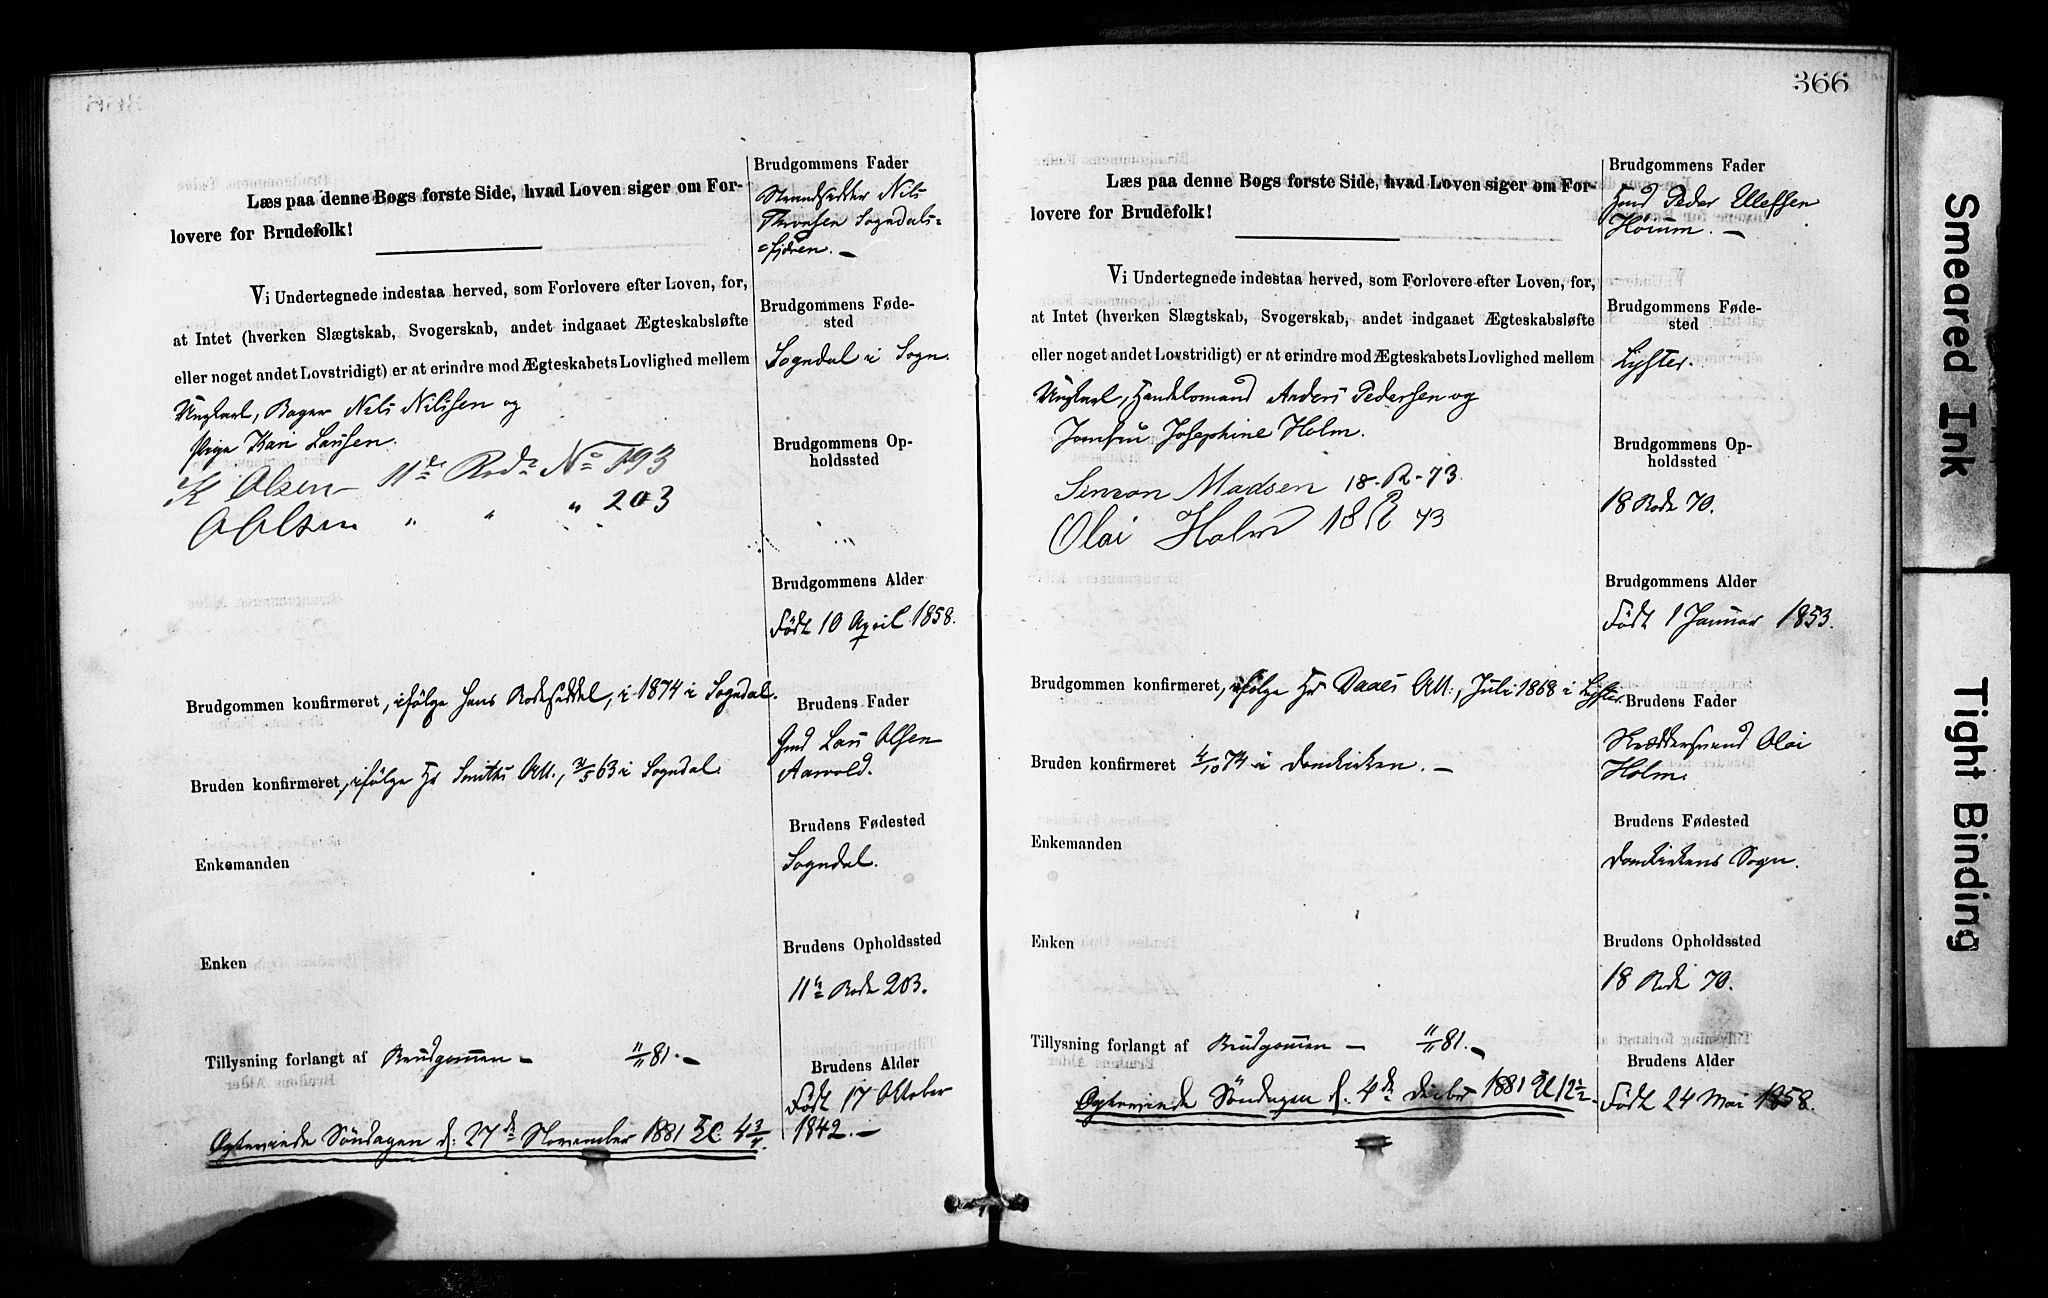 Læs paa denne Bogs første Side, hvad Loven siger om For-
lovere for Brudefolk!
Vi Undertegnede indestaa herved, som Forlovere efter Loven, for,
at Intet (hverken Slægtskab, Svogerskab, andet indgaaet Ægteskabsløfte
eller noget andet Lovstridigt) er at erindre mod Ægteskabets Lovlighed mellem
Ungkarl, Bager Nils Nilssen og
Pige Kari Larssen.
K Olsen 11de Rode No 193
O Olsen " " " 203
Brudgommen konfirmeret, ifølge hans Rodeseddel, i 1874 i Sogndal.
Bruden konfirmeret, ifølge Hr Smiths Att., 63 i Sogndal.
Enkemanden
Enken
Tillysning forlangt af Brudgommen — 11/11 81. —
Ægtevirede Søndagen d: 27de November 1881 Kl. 4 3/4.
Brudgommens Fader
Strandsidder Nils
Sogndals=
=fjæren. —
Brudgommens Føde-
sted
Sogndal i Sogn.
Brudgommens Op-
holdssted
Brudgommens Alder
Født 10 April 1858.
Brudens Fader
Gmd Lars Olsen
Aarvold.
Brudens Fødested
Sogndal.
Brudens Opholdssted
11te Rode 203.
Brudens Alder
Født 17 Oktober
1842. —
366
Læs paa denne Bogs første Side, hvad Loven siger om For-
lovere for Brudefolk!
Vi Undertegnede indestaa herved, som Forlovere efter Loven, for,
at Intet (hverken Slægtskab, Svogerskab, andet indgaaet Ægteskabsløfte
eller noget andet Lovstridigt) er at erindre mod Ægteskabets Lovlighed mellem
Ungkarl, Handelsmand Anders Pedersen og
Jomfru Josephine Holm.
Simon Madsen 18-R-73
Olai Holm 18 R 73
Brudgommen konfirmeret, ifølge Hr Daaes Att:, Juli 1868 i Lyster.
Bruden konfirmeret 4/10 74 i Domkirken. —
Enkemanden
Enken
Tillysning forlangt af Brudgommen — 11/11 81. —
Søndagen d. 4de Decbr 1881 Kl
Brudgommens Fader
Peder Ellefsen
Høium. —
Brudgommens Føde-
sted
Lyster.
Brudgommens Op-
holdssted
18 Rode 70.
Brudgommens Alder
Født 1 Januar 1853.
Brudens Fader
Skræddersvend Olai
Holm.
Brudens Fødested
Domkirkens Sogn.
Brudens Opholdssted
18 Rode 70.
Brudens Alder
Født 24 Mai 1858.
Smeared Ink
Tight Binding